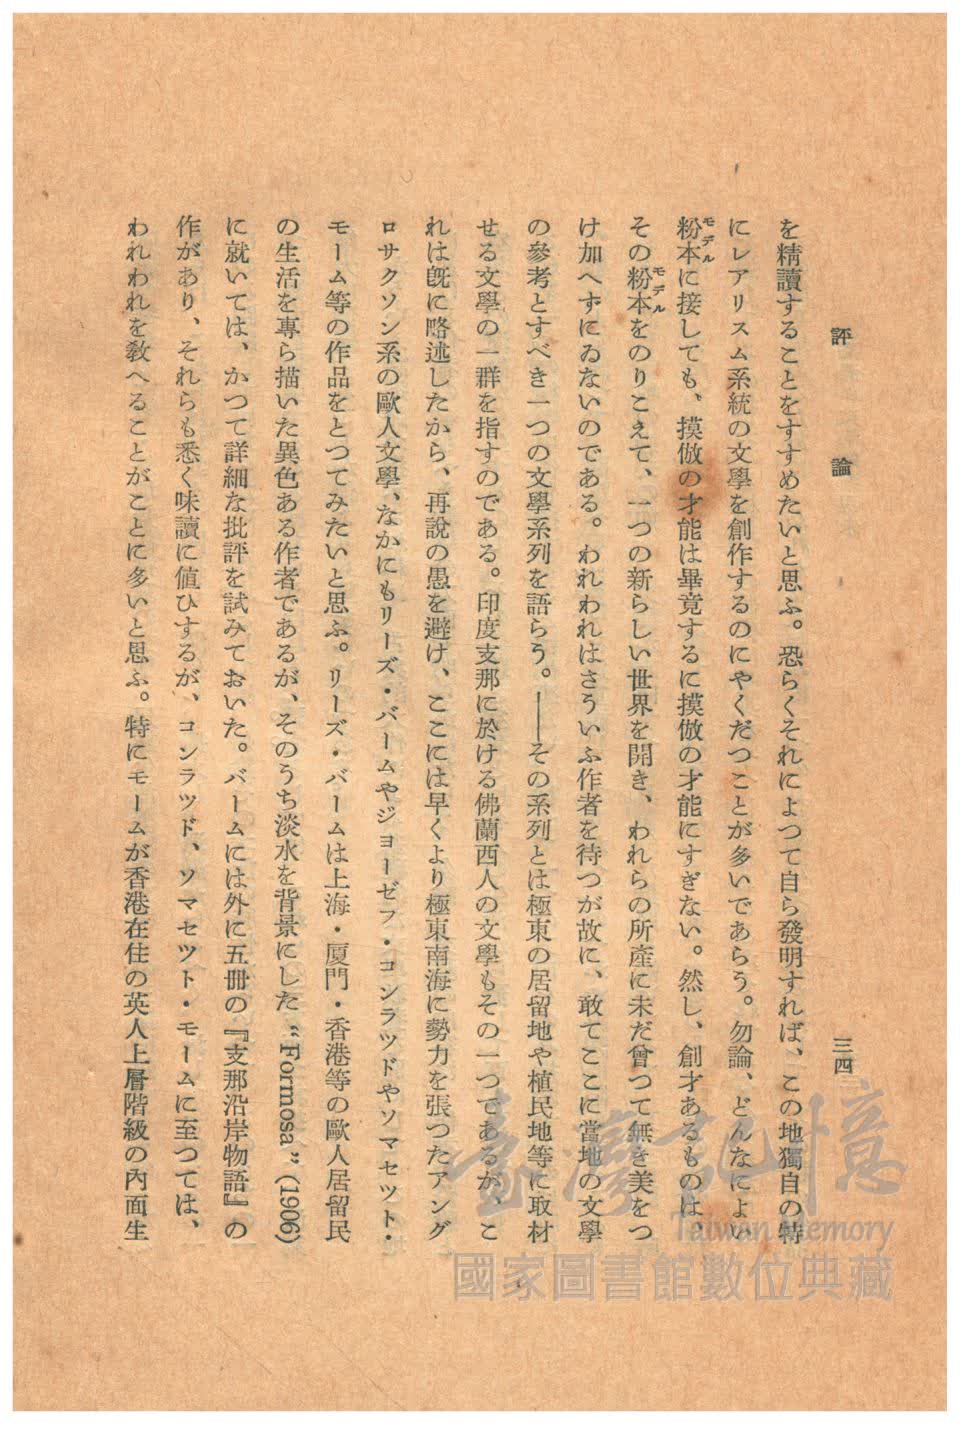 評論
三四
を精讀することをすすめたいと思ふ。恐らくそれによつて自ら發明すれば、この地獨自の特
にレアリスム系統の文學を創作するのにやくだつことが多いであらう。勿論、どんなによい
粉本モデルに接しても、摸倣の才能は畢竟するに摸倣の才能にすぎない。然し、創才あるものは、
その粉本モデルをのりこえて、一つの新らしい世界を開き、われらの所產に未だ曾つて無き美をつ
け加へずにゐないのである。われわれはさういふ作者を待つが故に、敢てここに當地の文學
の參考とすべき一つの文學系列を語らう。――その系列とは極東の居留地や植民地等に取材
せる文學の一群を指すのである。印度支那に於ける佛蘭西人の文學もその一つであるが、こ
れは旣に略述したから、再說の愚を避け、ここには早くより極東南海に勢力を張つたアング
ロサクソン系の歐人文學、なかにもリーズ・バームやジョーゼフ・コンラツドやソマセツト・
モーム等の作品をとつてみたいと思ふ。リーズ・バームは上海・厦門・香港等の歐人居留民
の生活を專ら描いた異色ある作者であるが、そのうち淡水を背景にした “Formosa” (1906)
に就いては、かつて詳細な批評を試みておいた。バームには外に五冊の『支那沿岸物語』の
作があり、それらも悉く味讀に値ひするが、コンラツド、ソマセツト・モームに至つては、
われわれを敎へることがことに多いと思ふ。特にモームが香港在住の英人上層階級の內面生
臺灣記憶
Taiwan Memory
國家圖書館數位典藏